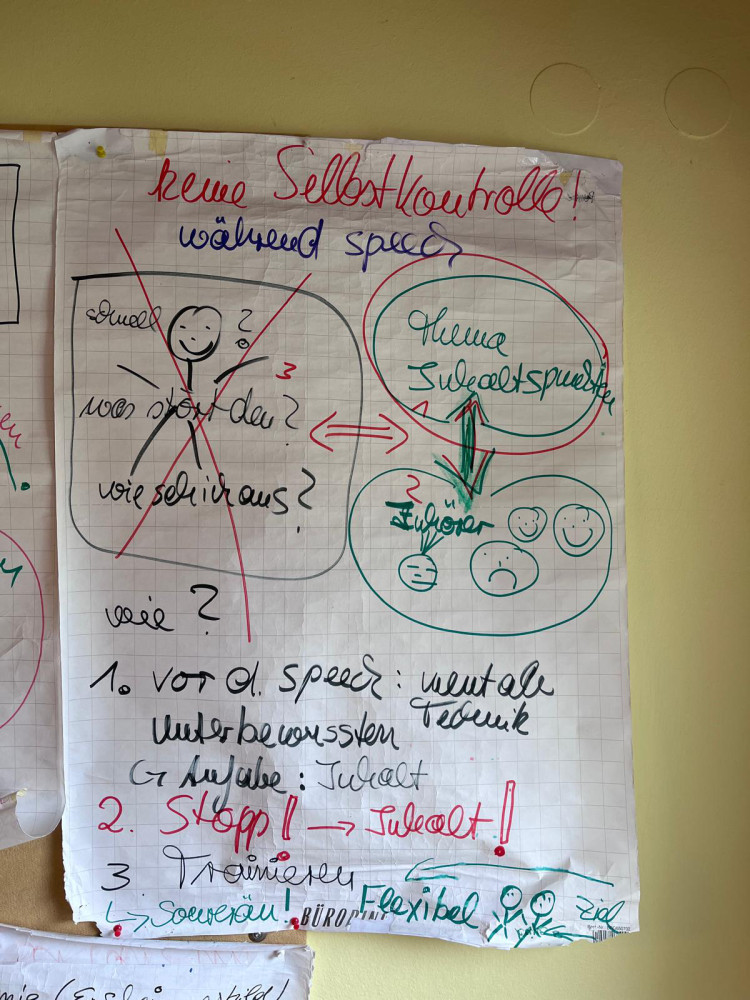 keine Selbstkontrolle!
während speech
schnell ?
3
was stört den?
wie seh ich aus?
Thema
Inhaltspunkten
1
2
Zuhörer
wie?
1. vor d. speech: mentale
Technik
Unterbewussten
↳ Aufgabe: Inhalt
2. Stopp! → Inhalt!
3. Trainieren
↳ Souverän!
Flexibel
Ziel
BÜROLINE